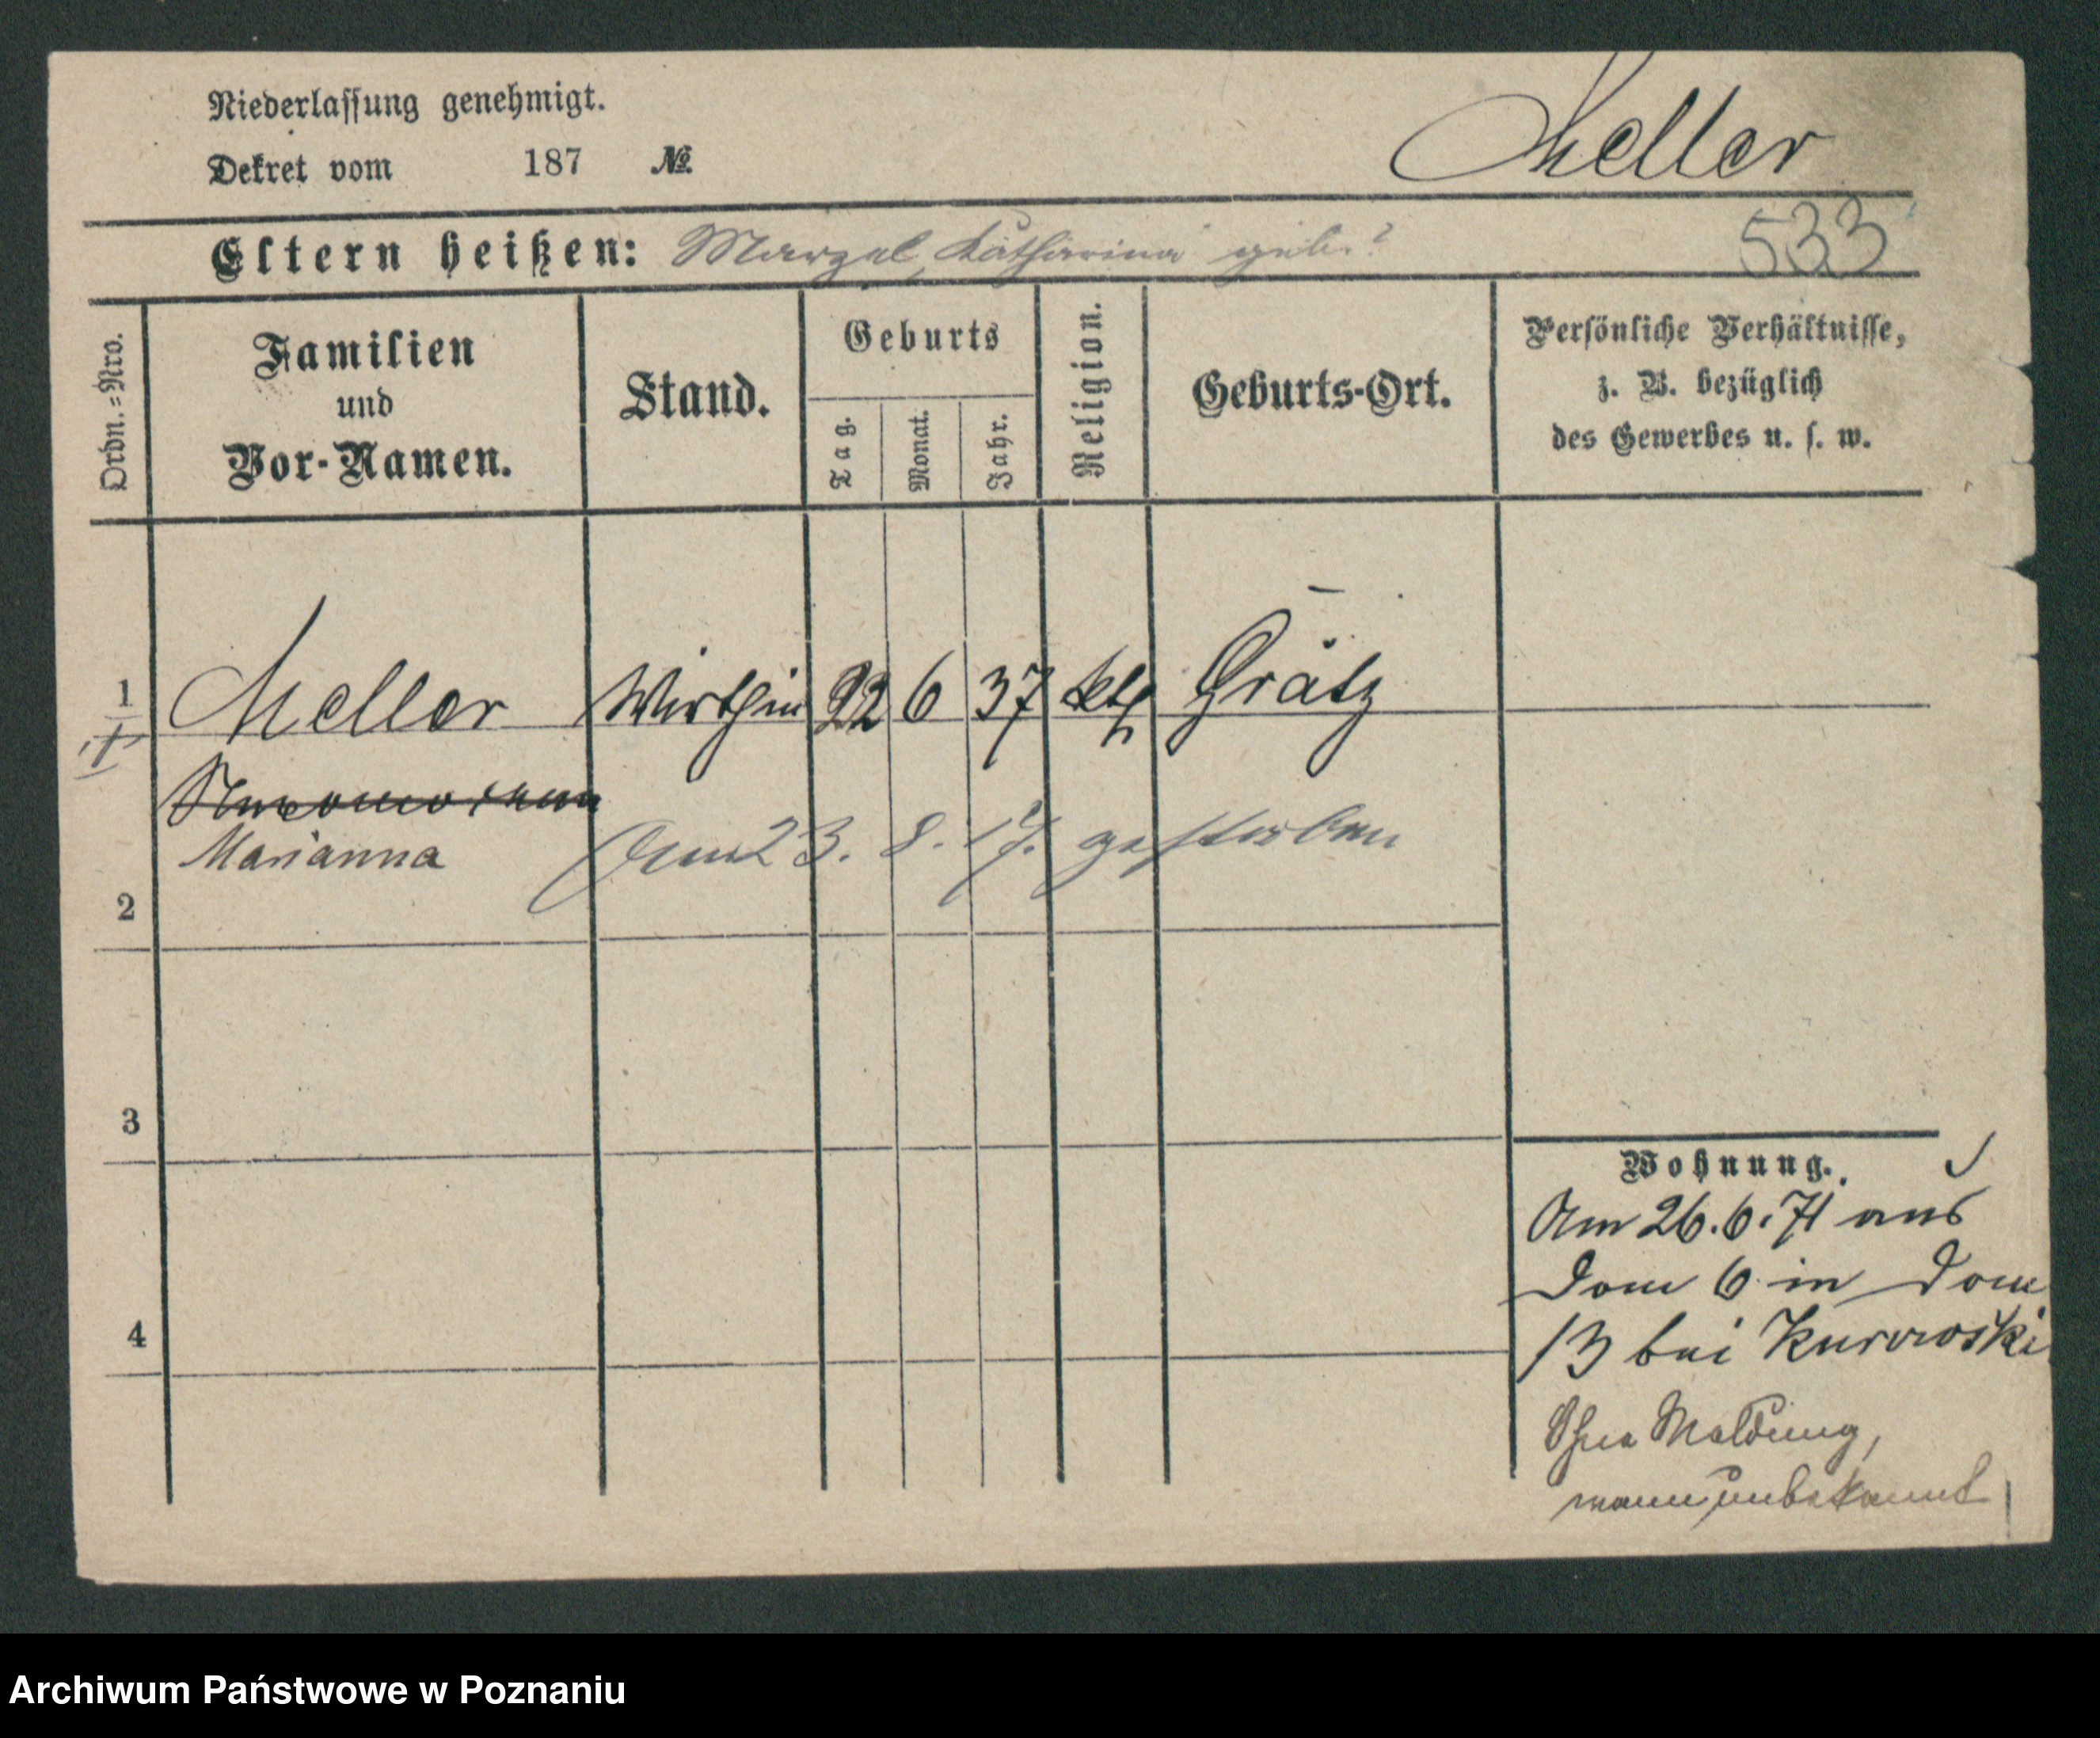 Niederlassung genehmigt.
Dekret vom 187 №
Meller
Eltern heißen: Marzel, Katharina geb. ?
533
Ordn.=Nro.
Familien
und
Vor-Namen.
Stand.
Geburts
Tag.
Monat.
Jahr.
Religion.
Geburts-Ort.
Persönliche Verhältnisse,
z. B. bezüglich
des Gewerbes u. s. w.
1 Meller Wirthin 22 6 37 kth Grätz
Marianna
Am 23. 8. 17. gestorben
2
3
4
Wohnung.
Am 26.6.71 aus
Dom 6 in Dom
13 bei Kurowski
Ohne Meldung,
wann unbekannt
Archiwum Państwowe w Poznaniu